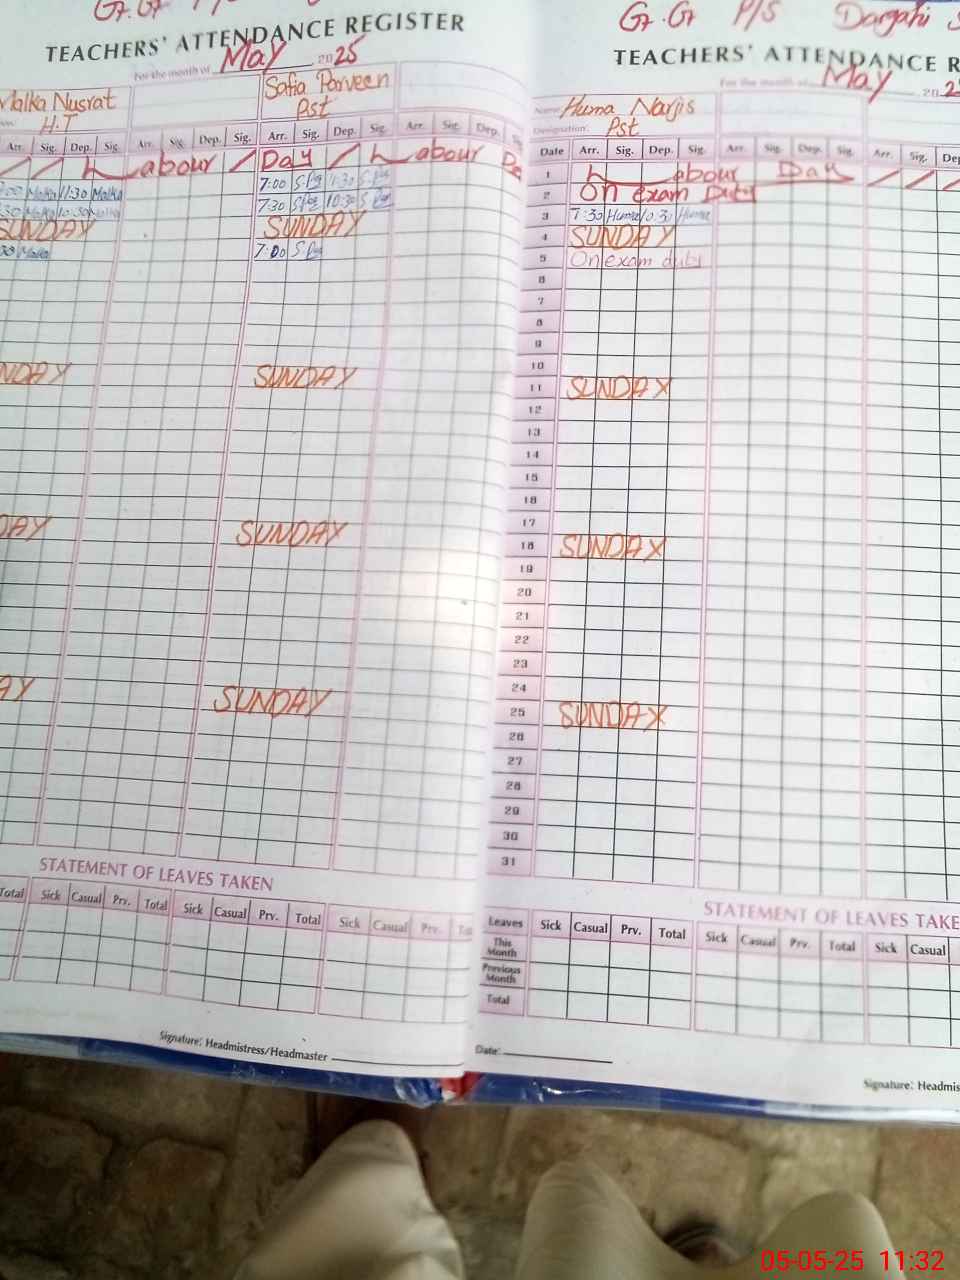 TEACHERS' ATTENDANCE REGISTER
For the month of May 2025
Malka Nusrat
H.T
Safia Parveen
Pst
Arr. Sig. Dep. Sig. Arr. Sig. Dep. Sig. Arr. Sig. Dep. Sig. Arr. Sig. Dep.
Labour Day Labour
7:00 11:30 Malka 7:00 11:30
7:30 10:30
SUNDAY SUNDAY
Malka 7:00
SUNDAY SUNDAY
SUNDAY
SUNDAY
STATEMENT OF LEAVES TAKEN
Total Sick Casual Prv. Total Sick Casual Prv. Total Sick Casual Prv.
Signature: Headmistress/Headmaster
G.G P/S Dargahi
TEACHERS' ATTENDANCE R
For the month of May 202
Name: Huma Narjis
Designation: Pst
Date Arr. Sig. Dep. Sig. Arr. Sig. Dep. Sig. Arr. Sig. Dep
1 Labour Day
2 On exam Duty
3 7:30 Huma 10:30 Huma
4 SUNDAY
5 On exam duty
6
7
8
9
10
11 SUNDAY
12
13
14
15
16
17
18 SUNDAY
19
20
21
22
23
24
25 SUNDAY
26
27
28
29
30
31
STATEMENT OF LEAVES TAKE
Leaves Sick Casual Prv. Total Sick Casual Prv. Total Sick Casual
This Month
Previous Month
Total
Date:
Signature: Headmis
05-05-25 11:32